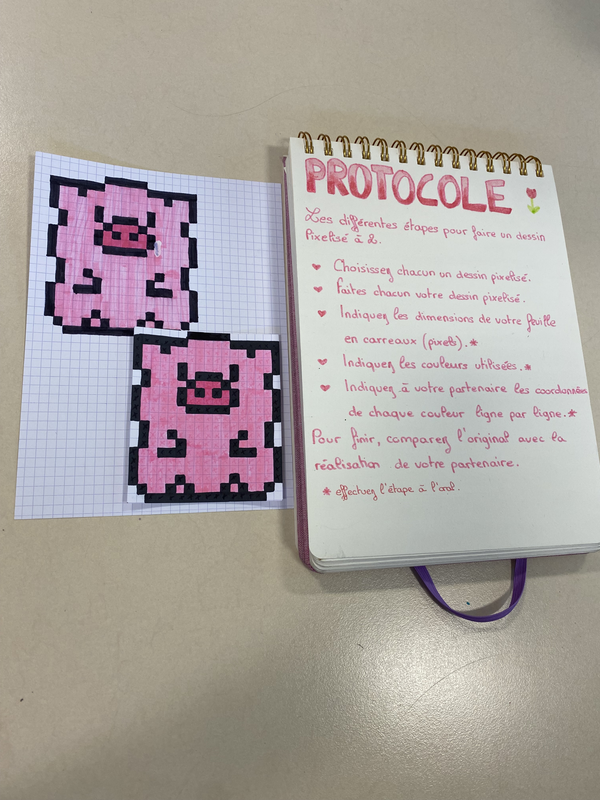 PROTOCOLE
Les différentes étapes pour faire un dessin
Pixelisé à 2.
Choisissez chacun un dessin pixelisé.
Faites chacun votre dessin pixelisé.
Indiquez les dimensions de votre feuille
en carreaux (pixels).*
Indiquez les couleurs utilisées.*
Indiquez à votre partenaire les coordonnées
de chaque couleur ligne par ligne.*
Pour finir, comparez l'original avec la
réalisation de votre partenaire.
* effectuez l'étape à l'oral.